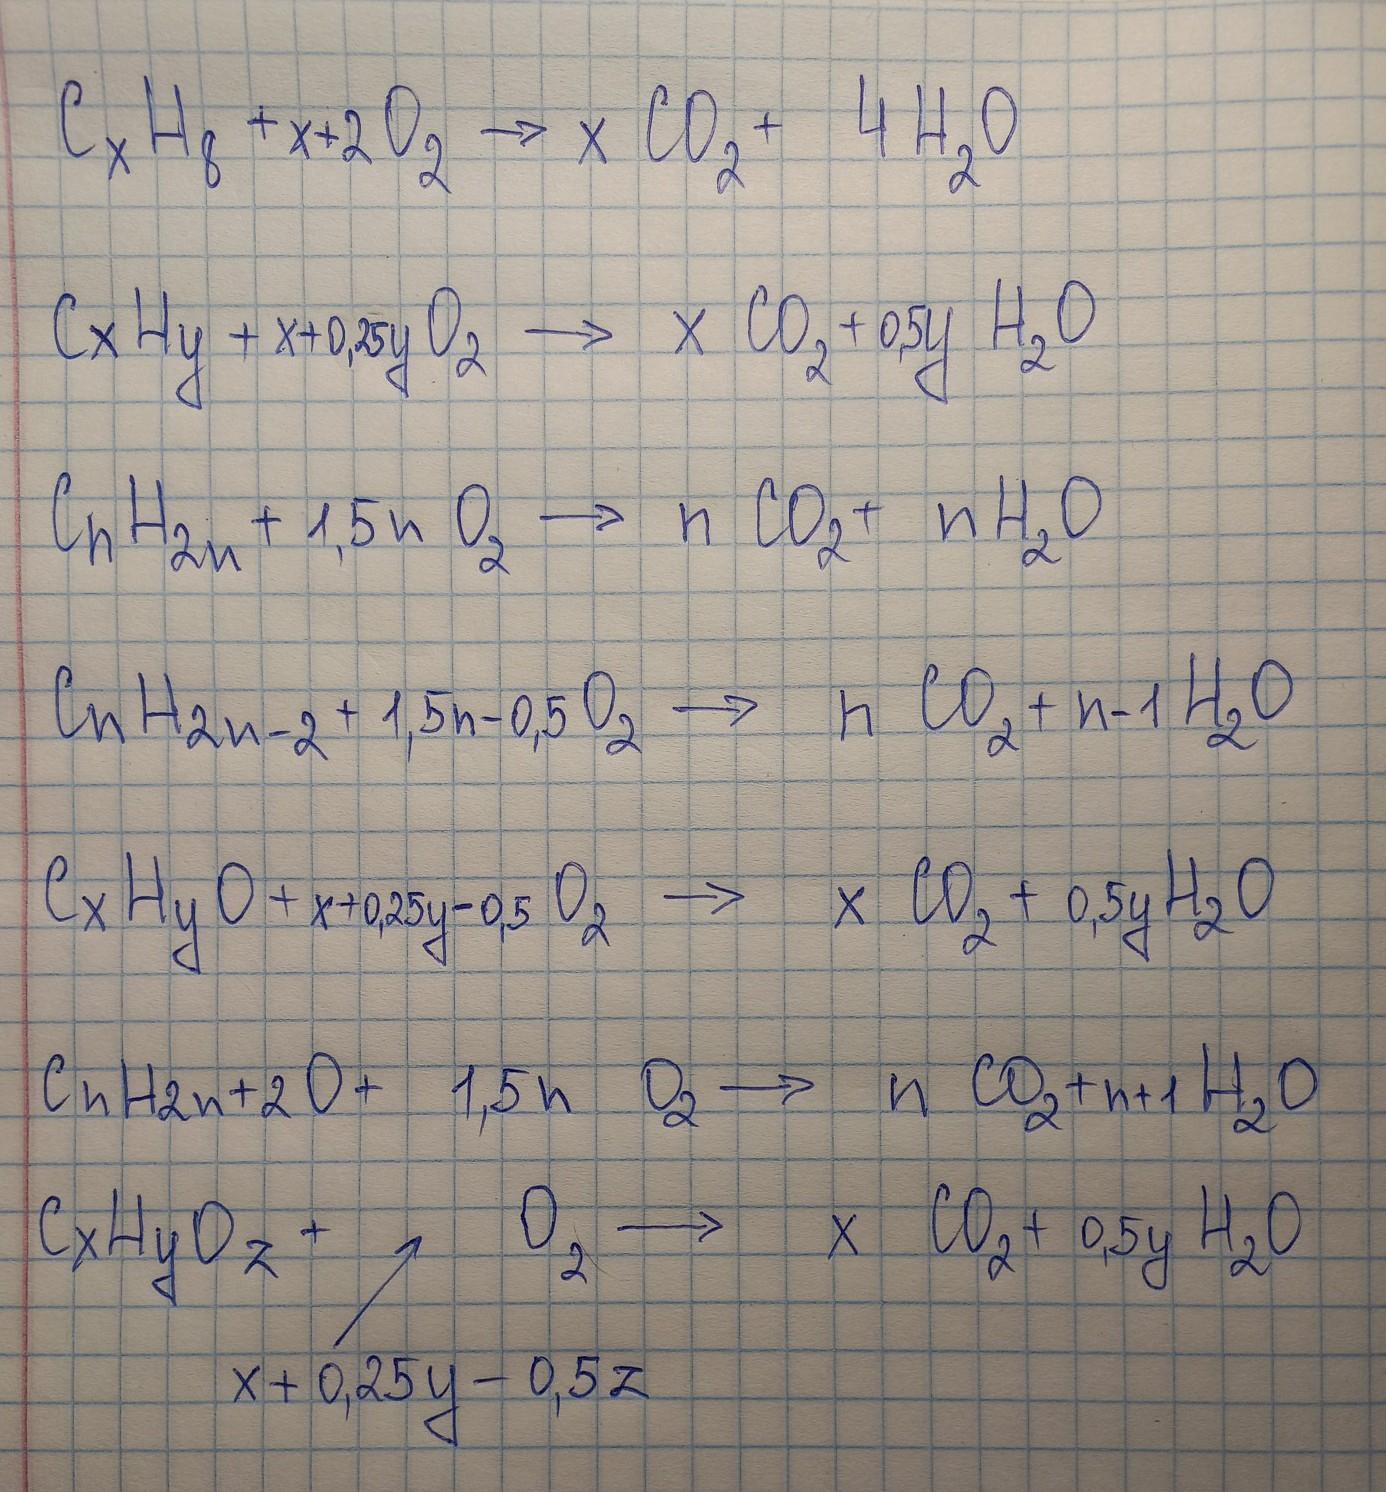 CₓH₈ + x+2 O₂ → x CO₂ + 4 H₂O
CxHy + x+0,25y O₂ → x CO₂ + 0,5y H₂O
CnH2n + 1,5n O₂ → n CO₂ + n H₂O
CnH2n-2 + 1,5n-0,5 O₂ → n CO₂ + n-1 H₂O
CxHyO + x+0,25y-0,5 O₂ → x CO₂ + 0,5y H₂O
CnH2n+2O + 1,5n O₂ → n CO₂ + n+1 H₂O
CxHyOz + O₂ → x CO₂ + 0,5y H₂O
x+0,25y-0,5z